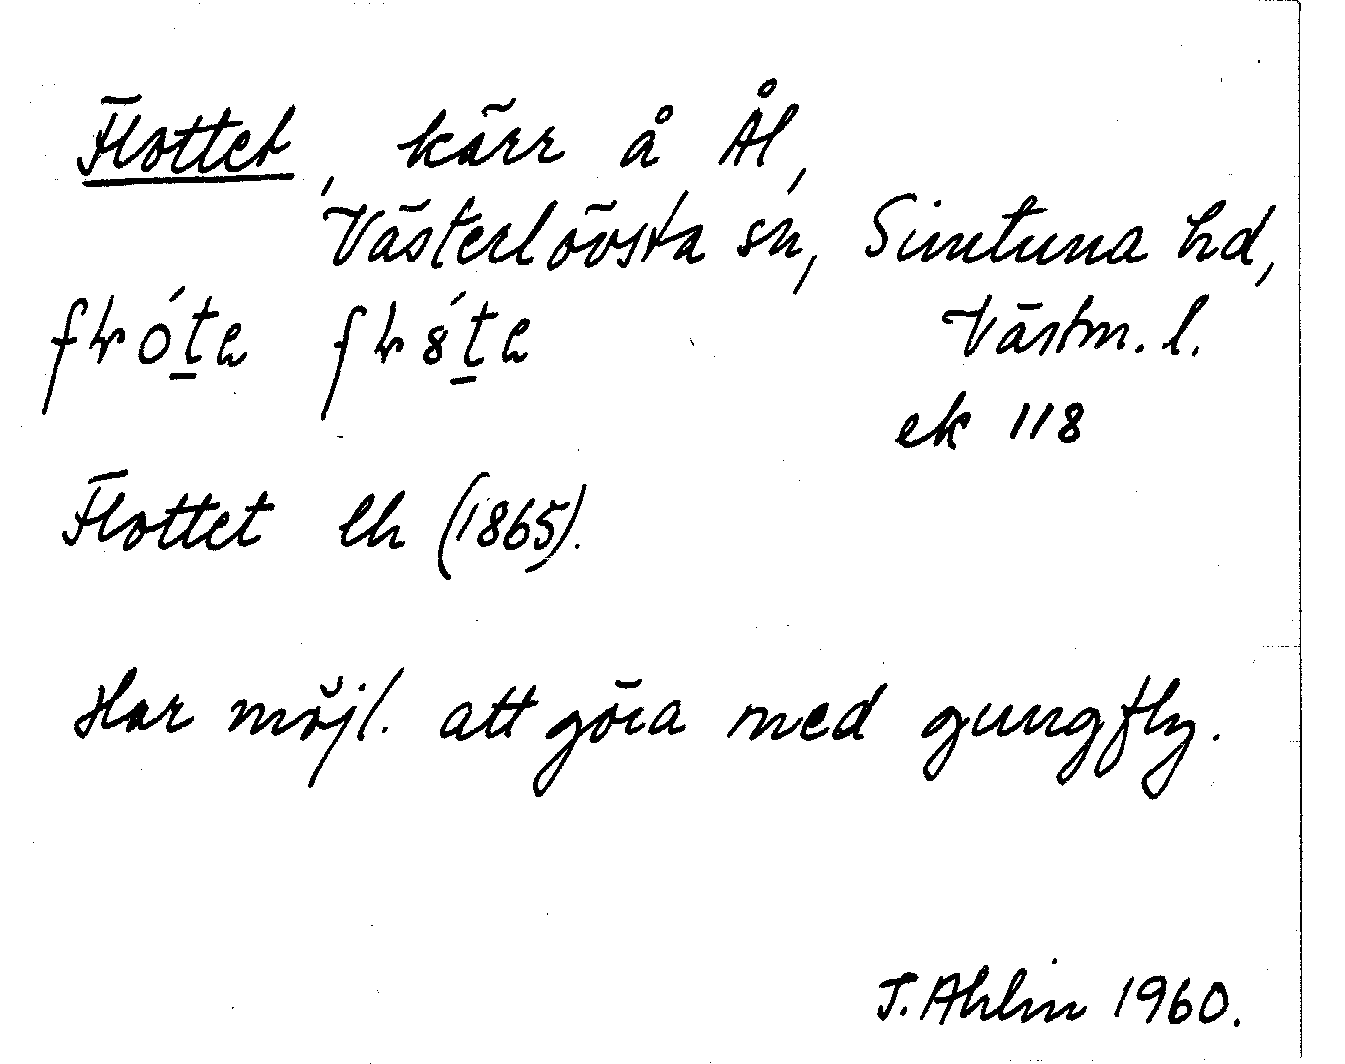 Flottet, kärr å Ål,
Västerlövsta sn, Simtuna hd,
Västm. l.
ek 118
Flottet lh (1865).
Har möjl. att göra med gungfly.
J. Ahlin 1960.